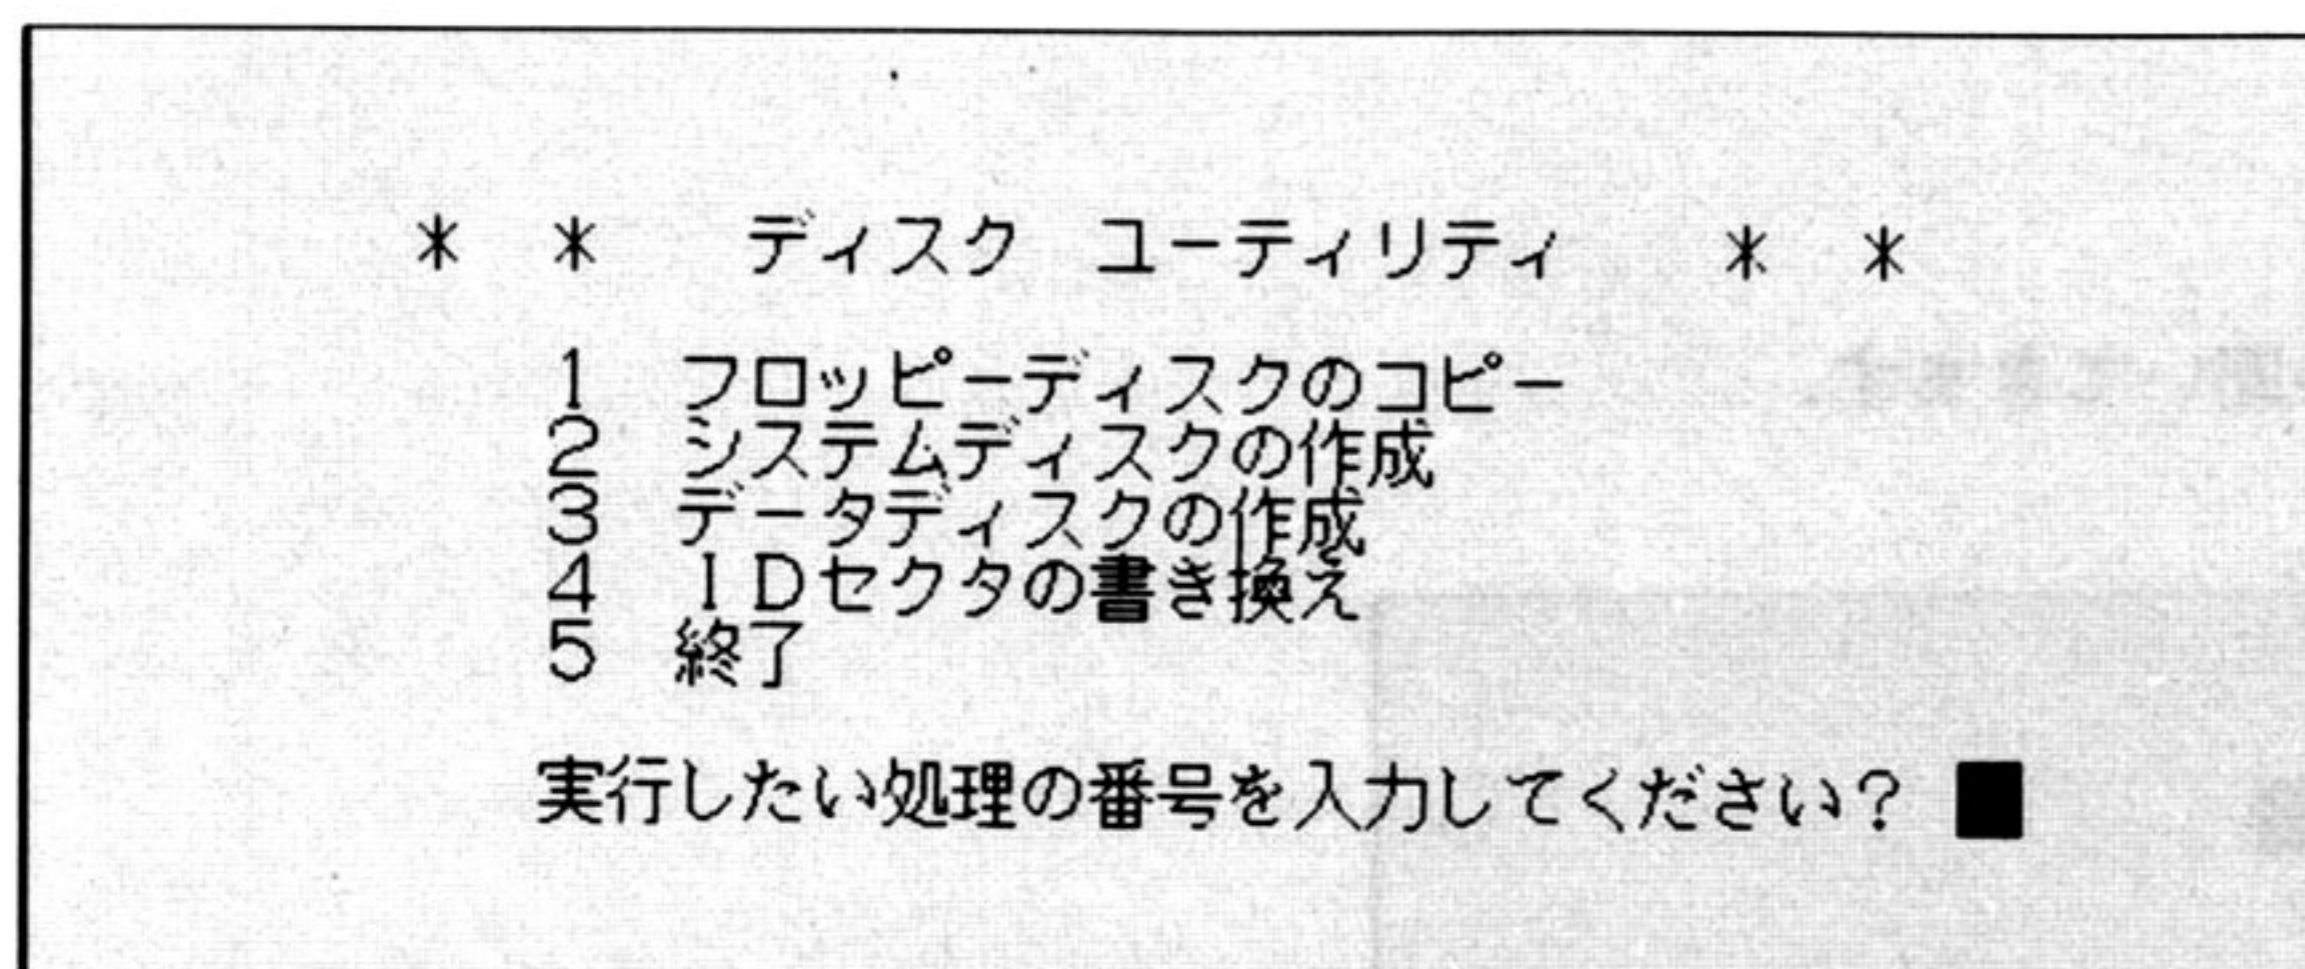 ＊　＊　　ディスク　ユーティリティ　　＊　＊
１　フロッピーディスクのコピー
２　システムディスクの作成
３　データディスクの作成
４　ＩＤセクタの書き換え
５　終了
実行したい処理の番号を入力してください？